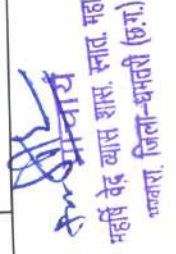 प्राचार्य
महर्षि वेद व्यास शास. स्नात. महा
भखारा, जिला-धमतरी (छ.ग.)